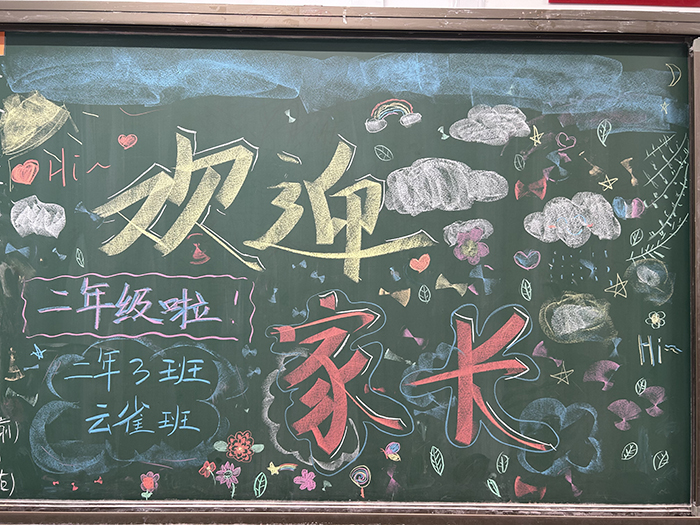 Hi~
欢迎
二年级啦!
家长
Hi~
二年3班
云雀班
前)